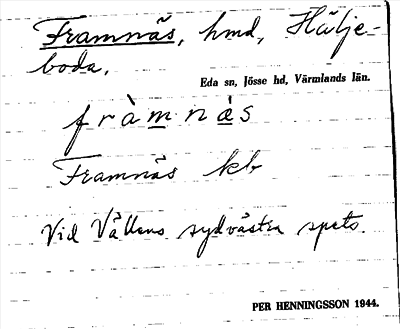 Framnäs, hmd, Hälje-
boda.
Eda sn, Jösse hd, Värmlands län.
fràmnä̀s
Framnäs kb
Vid Vällens sydvästra spets.
PER HENNINGSSON 1944.